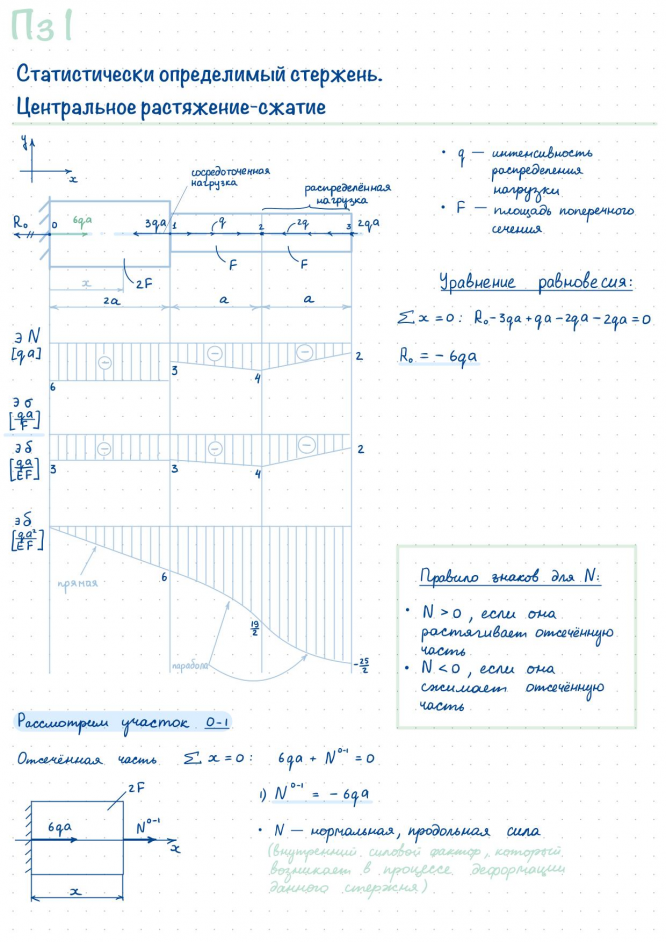 Пз 1
Статистически определимый стержень.
Центральное растяжение-сжатие
y
x
сосредоточенная
нагрузка
распределённая
нагрузка
R₀ 0 6qa 3qa 1 q 2 2q 3 2qa
F F
x 2F
2a a a
• q — интенсивность
распределения
нагрузки
• F — площадь поперечного
сечения
Уравнение равновесия:
∑x=0: R₀-3qa+qa-2qa-2qa=0
R₀ = - 6qa
э N
[qa]
6 3 4 2
э σ
[qa/F]
э б
[qa/EF]
3 3 4 2
э б
[qa²/EF]
прямая
6
19/2
парабола
-25/2
Правило знаков для N:
• N > 0, если она
растягивает отсечённую
часть
• N < 0, если она
сжимает отсечённую
часть
Рассмотрим участок 0-1
Отсечённая часть ∑x=0: 6qa + N⁰⁻¹ = 0
1) N⁰⁻¹ = - 6qa
2F
6qa N⁰⁻¹
x
x
• N — нормальная, продольная сила
(внутренний силовой фактор, который
возникает в процессе деформации
данного стержня)